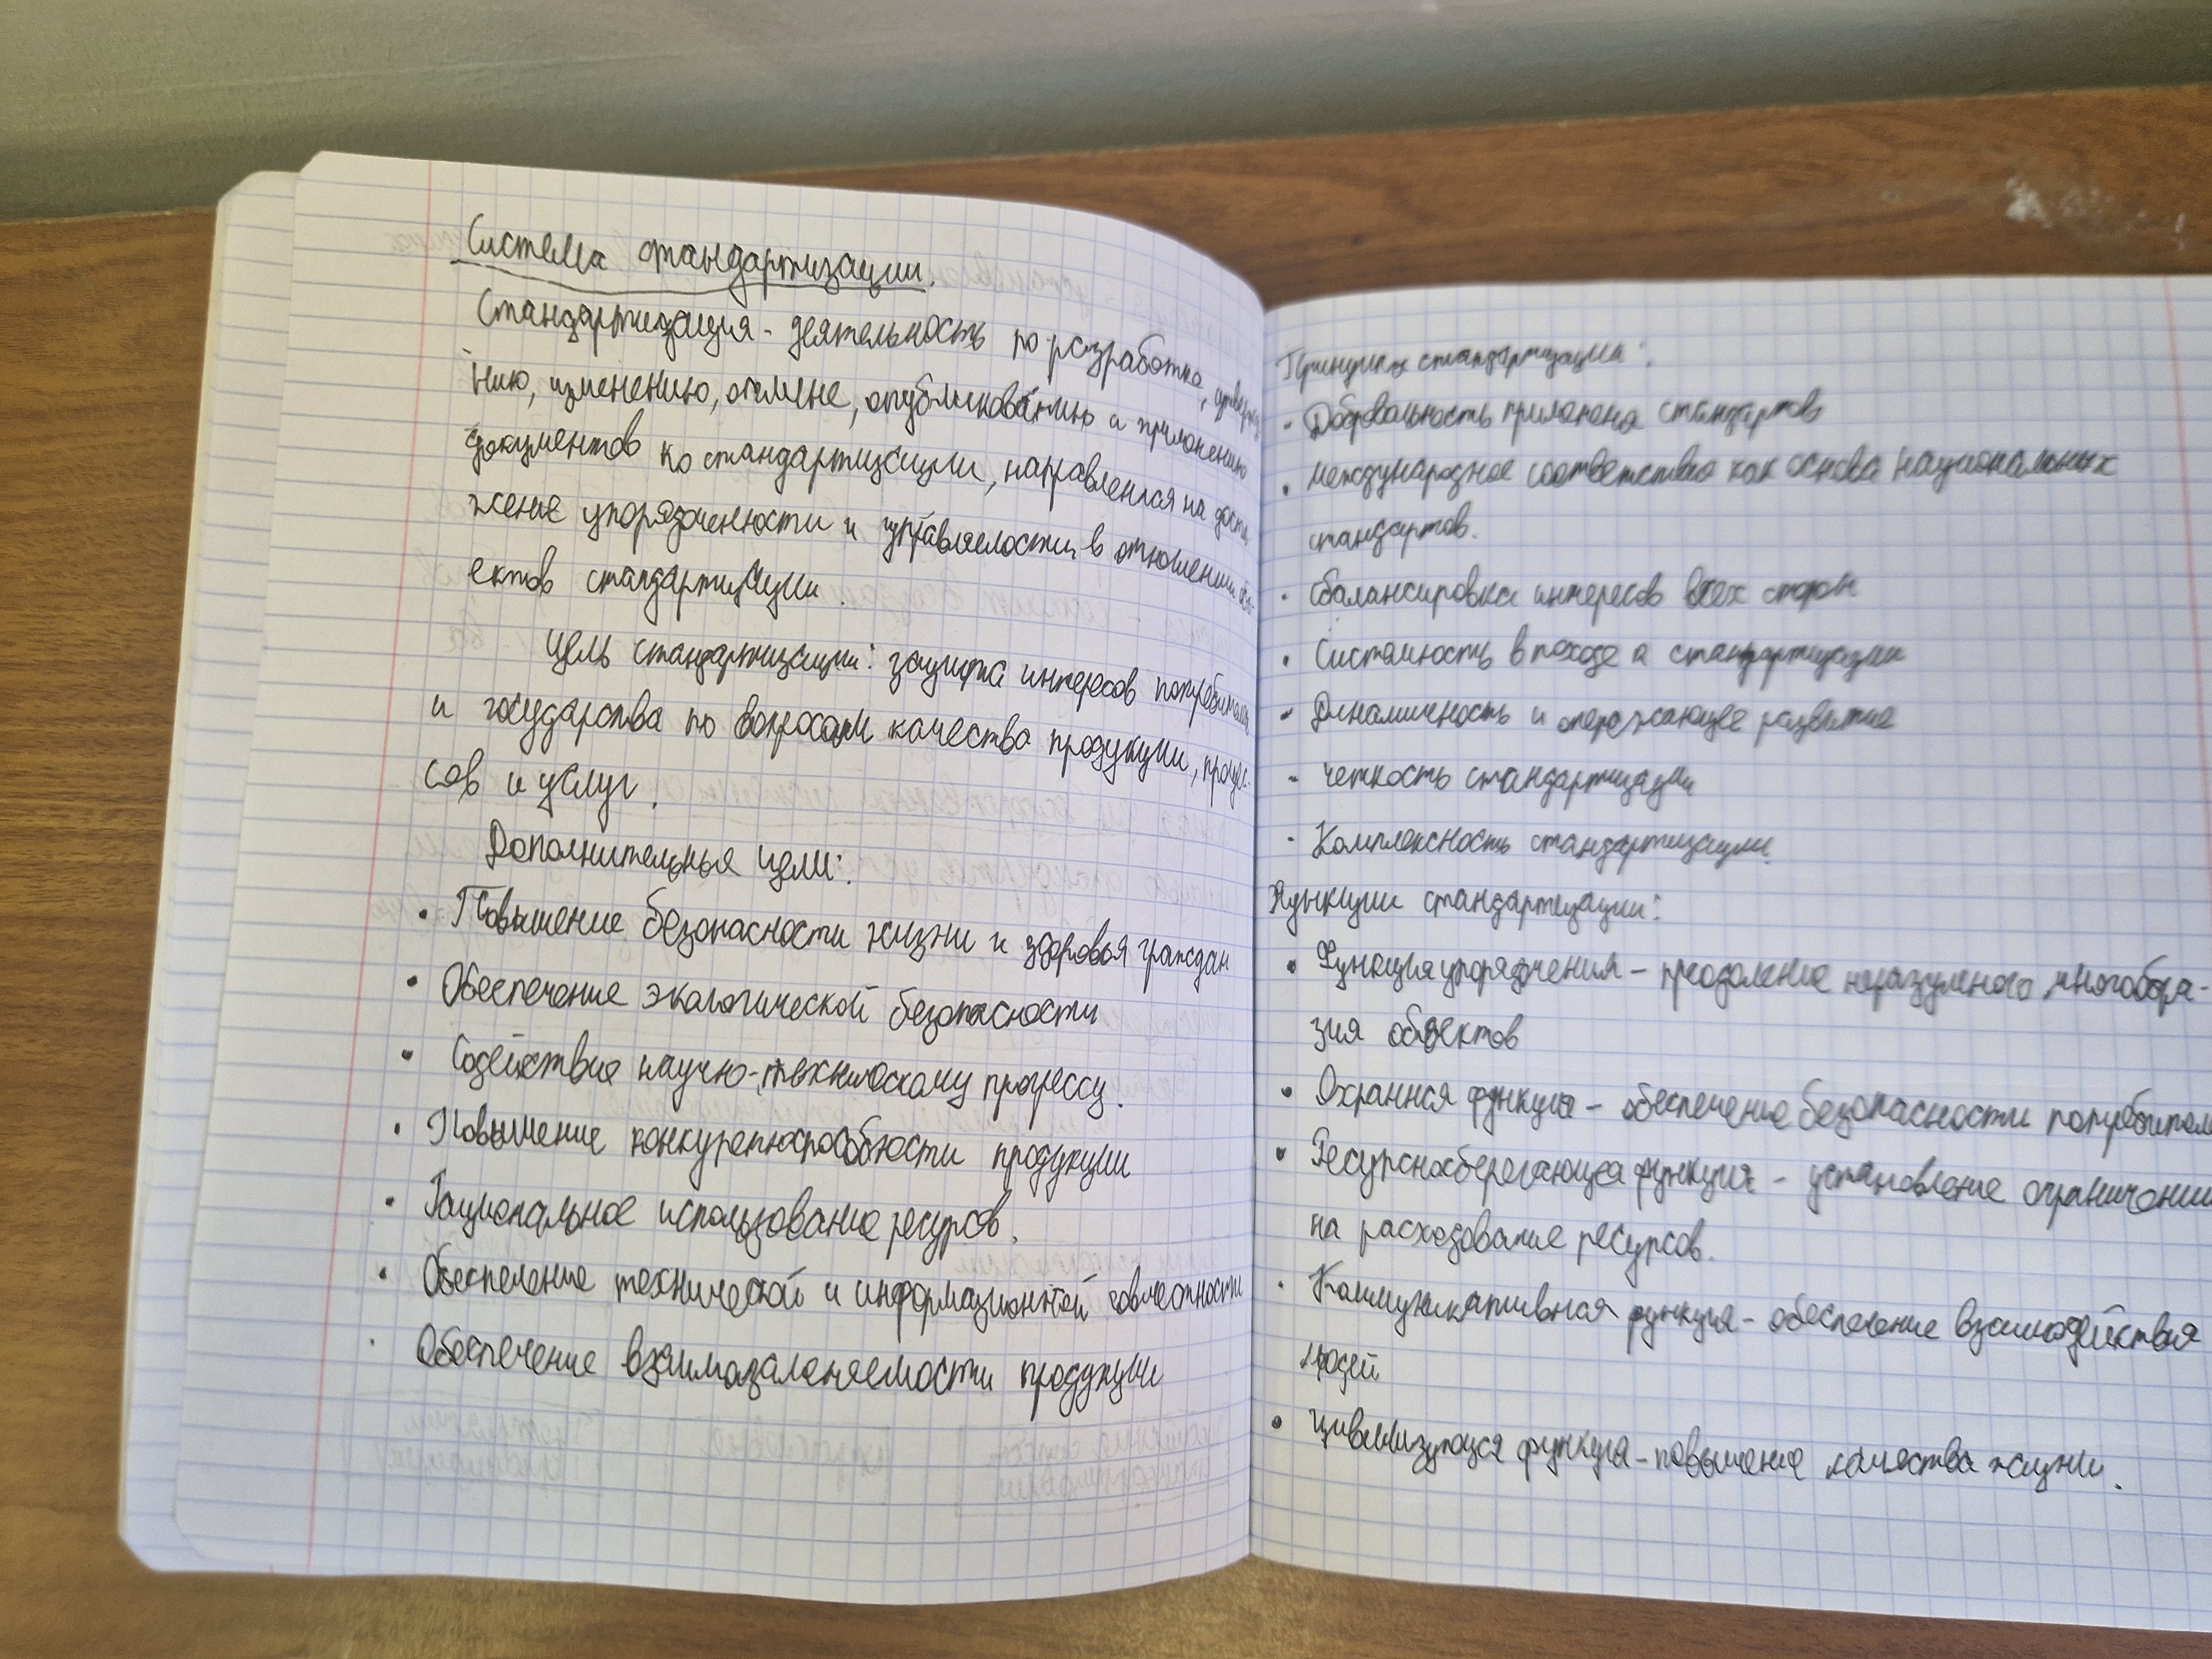 Система стандартизации.
Стандартизация - деятельность по разработке, утвержде
нию, изменению, отмене, опубликованию и применению
документов по стандартизации, направленная на дости
жение упорядоченности и управляемости в отношении объ-
ектов стандартизации.
Цель стандартизации: защита интересов потребителя
и государства по вопросам качества продукции, процес-
сов и услуг.
Дополнительные цели:
• Повышение безопасности жизни и здоровья граждан
• Обеспечение экологической безопасности
• Содействие научно-техническому прогрессу.
• Повышение конкурентоспособности продукции
• Рациональное использование ресурсов.
• Обеспечение технической и информационной совместности
• Обеспечение взаимозаменяемости продукции
Принципы стандартизации:
- Добровольность применения стандартов
• международное соответствие как основа национальных
стандартов.
• сбалансировка интересов всех сторон
• Системность в походе к стандартизации
- Динамичность и опережающее развитие
- четкость стандартизации
- Комплексность стандартизации.
Функции стандартизации:
• Функция упорядочения - преодоление неразумного многообра-
зия объектов
• Охранная функция - обеспечение безопасности потребител
• Ресурсосберегающая функция - установление ограничении
на расходование ресурсов.
• Коммуникативная функция - обеспечение взаимодействия
людей
• Цивилизующая функция - повышение качества жизни.